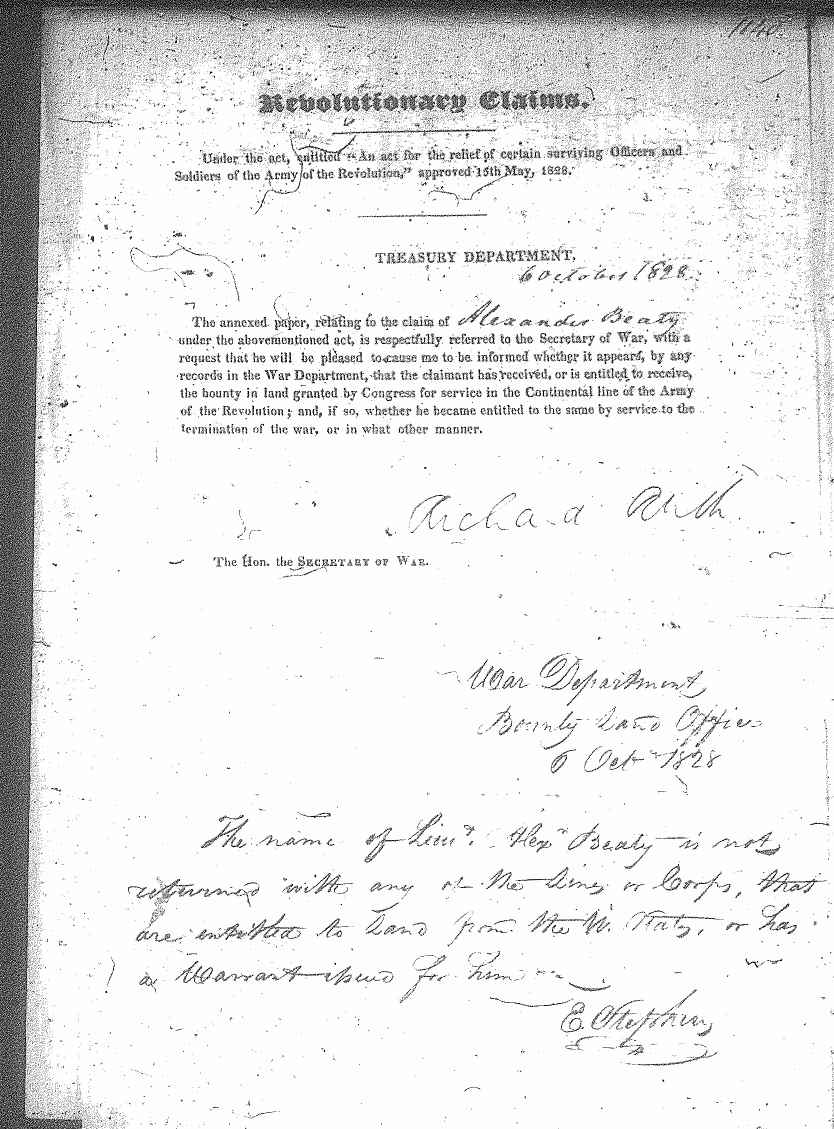 1140
Revolutionary Claims.
Under the act, entitled "An act for the relief of certain surviving Officers and
Soldiers of the Army of the Revolution," approved 15th May, 1828.
TREASURY DEPARTMENT,
6 October 1828.
The annexed paper, relating to the claim of Alexander Beaty
under the abovementioned act, is respectfully referred to the Secretary of War, with a
request that he will be pleased to cause me to be informed whether it appears, by any
records in the War Department, that the claimant has received, or is entitled to receive,
the bounty in land granted by Congress for service in the Continental line of the Army
of the Revolution; and, if so, whether he became entitled to the same by service to the
termination of the war, or in what other manner.
Richard Rush
The Hon. the SECRETARY OF WAR.
War Department,
Bounty Land Office
6 Oct 1828
The name of Lieut. Alexr Beaty is not
returned with any of the Lines or Corps, that
are entitled to Land from the U. States, or has
a Warrant issued for him
E. Stephens